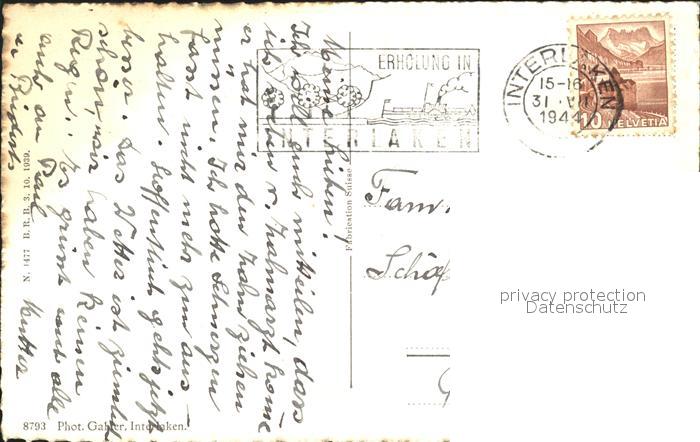 Meine Lieben!
Ich will euch mitteilen, dass
ich eben v. Zahnarzt komme
er hat mir den Zahn ziehen
müssen. Ich hatte Schmerzen
fasst nicht mehr zum aus-
halten. Hoffentlich gehts jetzt
besser. Das Wetter ist ziemlich
schön, wir haben keinen
Regen. Es grüsst euch alle
auch an Paul
Mutter
ERHOLUNG IN
INTERLAKEN
INTERLAKEN
15-16
31 . VII
1944
10 HELVETIA
Fam.
Schöf
privacy protection
Datenschutz
Fabrication Suisse
N. 1477 B.R.B. 3. 10. 1939.
8793 Phot. Gabler, Interlaken.